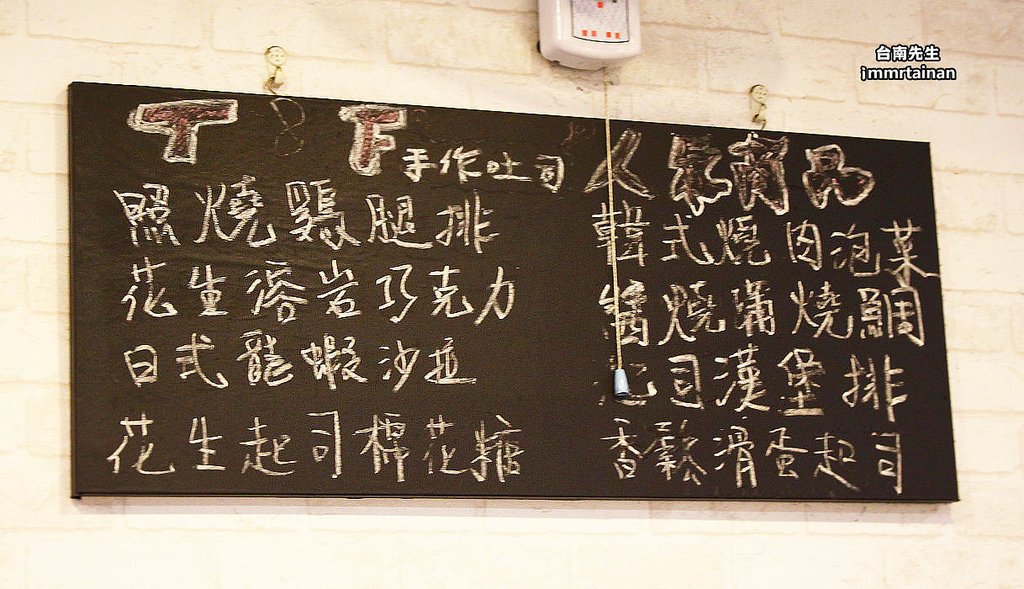 台南先生
jmmrtainan
T F 手作吐司
照燒鷄腿排
花生溶岩巧克力
日式龍蝦沙拉
花生起司棉花糖
人氣商品
韓式燒肉泡菜
醬燒蒲燒鯛
起司漢堡排
香鬆滑蛋起司